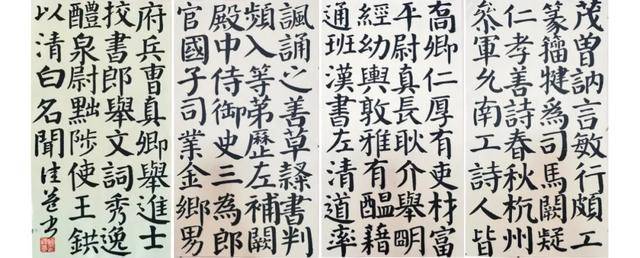 茂曾訥言敏行頗工
篆籀犍為司馬闕疑
仁孝善詩春秋杭州
叅軍允南工詩人皆
喬卿仁厚有吏材富
平尉真長耿介舉眀
經幼輿敦雅有醞藉
通班漢書左清道率
諷誦之善草隸書判
頻入等弟歷左補闕
殿中侍御史三為郎
官國子司業金鄉男
府兵曹真卿舉進士
挍書郎舉文詞秀逸
醴泉尉黜陟使王鉷
以清白名聞